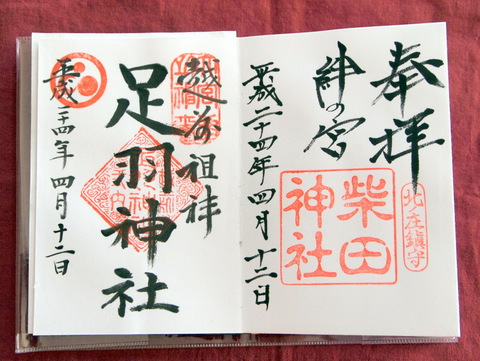 奉拝
北庄鎮守
絆の宮
柴田神社
平成二十四年四月十二日
越前祖神
足羽神社
平成二十四年四月十二日